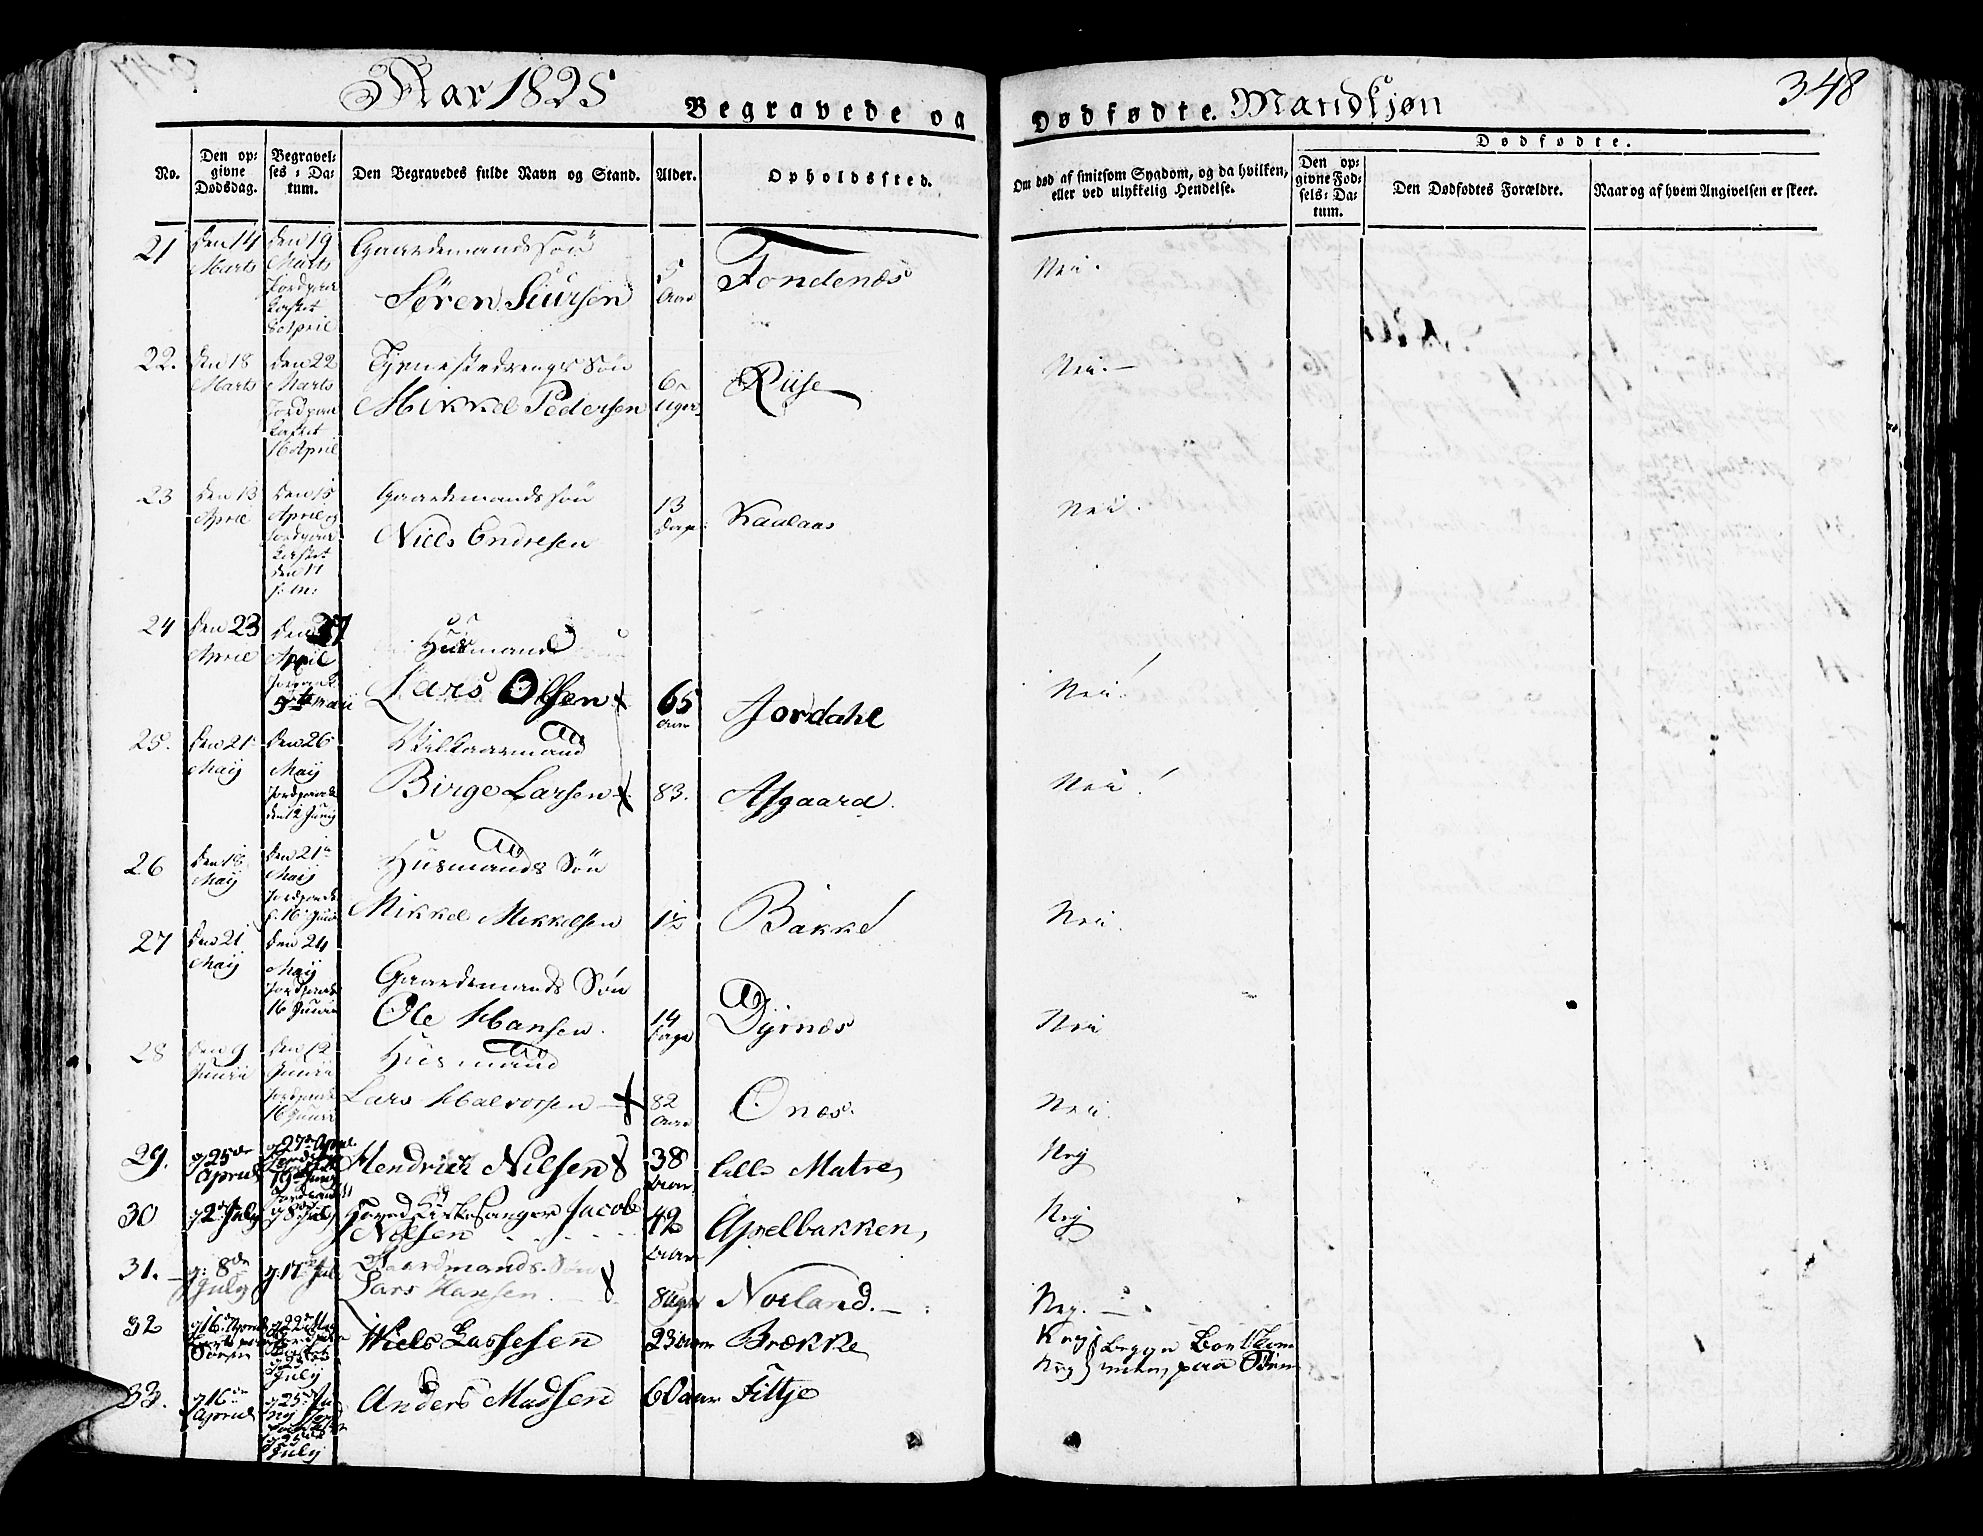 Aar 1825
Begravede og
Dødfødte. Mandkjøn
348
No.
Den opgivne Dødsdag.
Begravelses-Datum.
Den Begravedes fulde Navn og Stand.
Alder.
Opholdssted.
Om død af smitsom Sygdom, og da hvilken, eller ved ulykkelig Hendelse.
Dødfødte.
Den opgivne Fødsels-Datum.
Den Dødfødtes Forældre.
Naar og af hvem Angivelsen er skeet.
21 den 14 Marts den 19 Marts Jordpaakastet 8 April Gaardemands søn Søren Siursen 5 Aar Tondenæs Nei.
22. den 18 Marts den 22 Marts Jordpaakastet 16 April Tjenestedrengs søn Mikkel Pedersen 6 Uger Riise Nei.
23 den 13 April den 15 April og Jordpaakastet den 17 Gaardemands søn Niels Endresen 13 Dage Kaulaas Nei.
24 den 23 April den 27 April Husmand Lars Olsen 65 Aar Jordahl Nei.
25. den 21 Maij den 26 Maij Jordpaak den 12 Junij Vilkaarmand Birge Larsen 83. Asgaard. Nei.
26 den 18 Maij den 21 Maij Husmands Søn Mikkel Mikkelsen 1½ Bakke Nei.
27 den 21 Maij den 24 Maij 16 Junii Gaardemands Søn Ole Hansen. 14 Dage Dyrnæs Nei
28 den 9 Junii den 12 Junii 16 Junii Husmand Lars Halvorsen 82 Aar Onæs. Nei.
29. 25de April 27de April Hendrick Nilsen 38 Aar Lille Matre, Nej
30 2 July 8 July Kirkesanger Jacob Nilsen 42 Aar Apelbakken, Nej
31. 8de July 17 July Gaardmands Søn Lars Hansen. 8 Uger Norland. Nej.
32 16 22 July Niels Lassesen 23 Aar Brække Nej
33. 16de April 25 July Anders Madsen 60 aar Fittje Nej